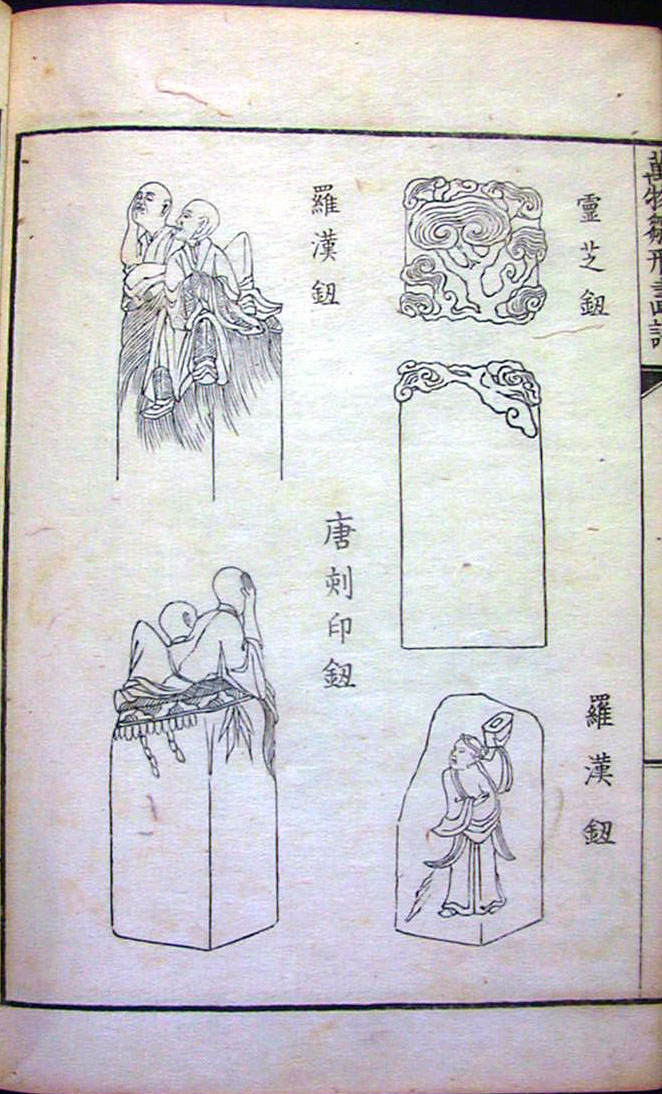 萬物雛形畫譜
靈芝鈕
羅漢鈕
羅漢鈕
唐刻印鈕